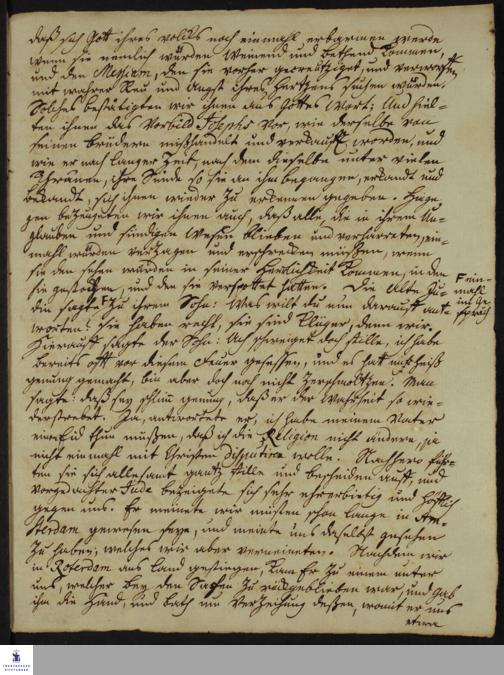 daß sich Gott ihres volcks noch einmahl erbarmen werde
wenn sie nemlich würden Weinend und bethend kommen,
und den Messiam, den sie vorher gecreutziget, und verworffen,
mit wahrer Reu und Angst ihres Hertzens suchen würden.
Solches bestätigten wir ihnen aus Gottes Wort; Und hiel-
ten ihnen das Vorbild Josephs vor, wie derselbe von
seinen brüdern mißhandelt und verkaufft worden, und
wie er nach langer Zeit, nach dem dieselbe unter vielen
Thränen, ihre Sünde so sie an ihm begangen, erkandt und
bekandt, sich ihnen wieder zu erkennen gegeben. Hinge-
gen bezeugeten wir ihnen auch, daß alle, die in ihrem Un-
glauben und sündigen Wesen blieben und verharreten, ein-
mahl würden verzagen und erschrecken müßen, wenn
sie den sehen würden in seiner Herrlichkeit kommen, in den
sie gestochen, und den sie verspottet hätten. Die alte Jü-
din sagte zu ihrem Sohn: Was wilt du nun darauff ant-
worten? sie haben recht, sie sind klüger, denn wir.
einmahl
im Ge-
spräch
Hierauff sagte der Sohn: Ach schweiget doch stille, ich habe
bereits offt vor diesem Feuer gesessen, und es hatt mich heiß
genung gemacht, bin aber doch noch nicht zerschmoltzen. Man
sagte: daß sey schlim genung, daß er der Wahrheit so wie-
derstrebet. Ja, antwortete er, ich habe meinem Vater
einen Eid thun müßen, daß ich die Religion nicht ändere, ja
nicht einmahl mit Christen disputiren wolle. Nachhero führ-
ten sie sich allesamt gantz stille und bescheiden auff, und
vorgedachter Jude bezeigete sich sehr ehrerbietig und höfflich
gegen uns. Er meinete wir müsten schon lange in Am-
sterdam gewesen seyn, und meinte uns daselbst gesehen
zu haben; welches wir aber verneineten. Nachdem wir
in Roterdam ans Land gestiegen, kam Er zu einem unter
uns, welcher bey den Sachen zurückgeblieben war, und gab
ihm die Hand, und bath um Verzeihung deßen, womit er uns
etwa
FRANCKESCHE
STIFTUNGEN